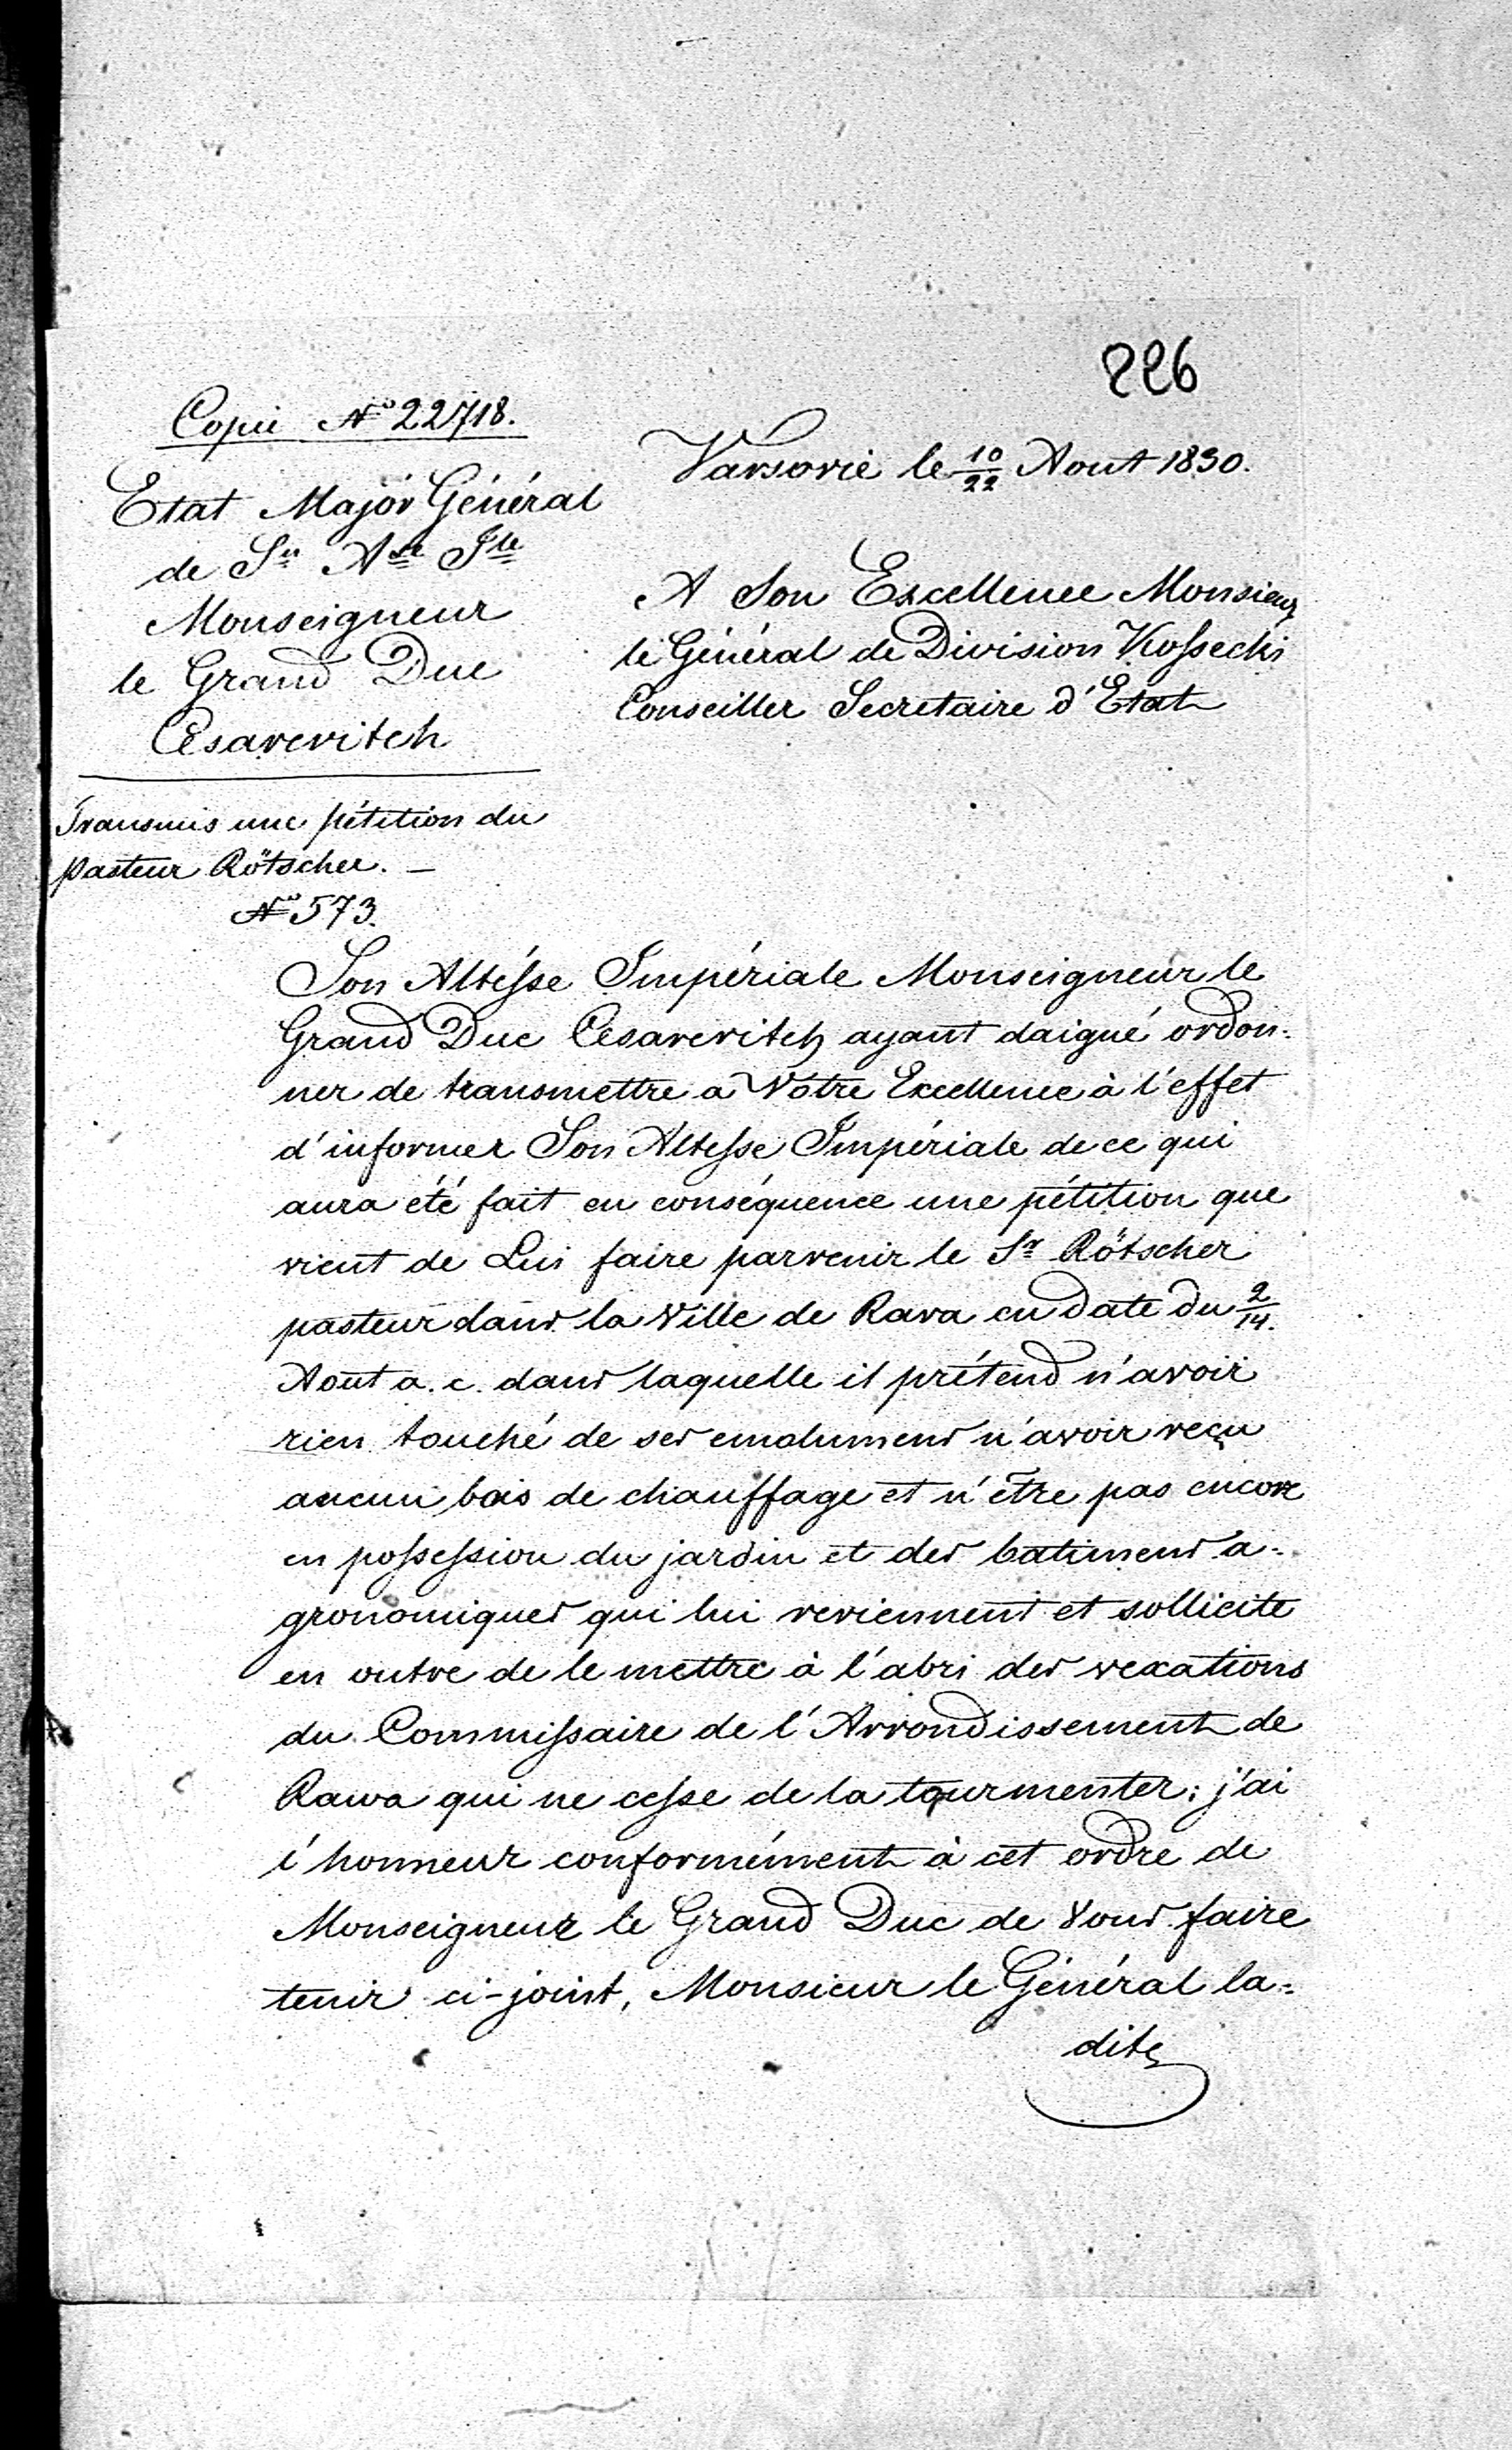 226
Copie № 22718.
Etat Major Général
de Sn Asse Ile
Monseigneur
le Grand Duc
Césarevitch
Transmis une pétition du
pasteur Rötscher. —
№ 573.
Varsovie le 10/22 Aout 1830.
A Son Excellence Monsieur
le Général de Division Kossecki
Conseiller Secretaire d'Etat
Son Altésse Impériale Monseigneur le
Grand Duc Césarevitch ayant daigné ordon-
ner de transmettre a Vôtre Excellence à l'effet
d'informer Son Altesse Impériale de ce qui
aura été fait en conséquence une pétition que
vient de Lui faire parvenir le Sr Rötscher
pasteur dans la Ville de Rava en date du 2/14.
Aout a. c. dans laquelle il prétend n'avoir
rien touché de ses emolumens n'avoir reçu
aucun bois de chauffage et n'être pas encore
en possession du jardin et des batimens a-
gronomiques qui lui reviennent et sollicite
en outre de le mettre à l'abri des vexations
du Commissaire de l'Arrondissement de
Rawa qui ne cesse de la tourmenter: j'ai
l'honneur conformément à cet ordre de
Monseigneur le Grand Duc de Vous faire
tenir ci-joint, Monsieur le Général la-
dite